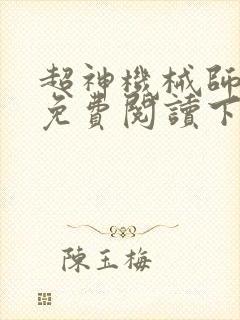 超神機械師
免費閱讀下
陳玉梅